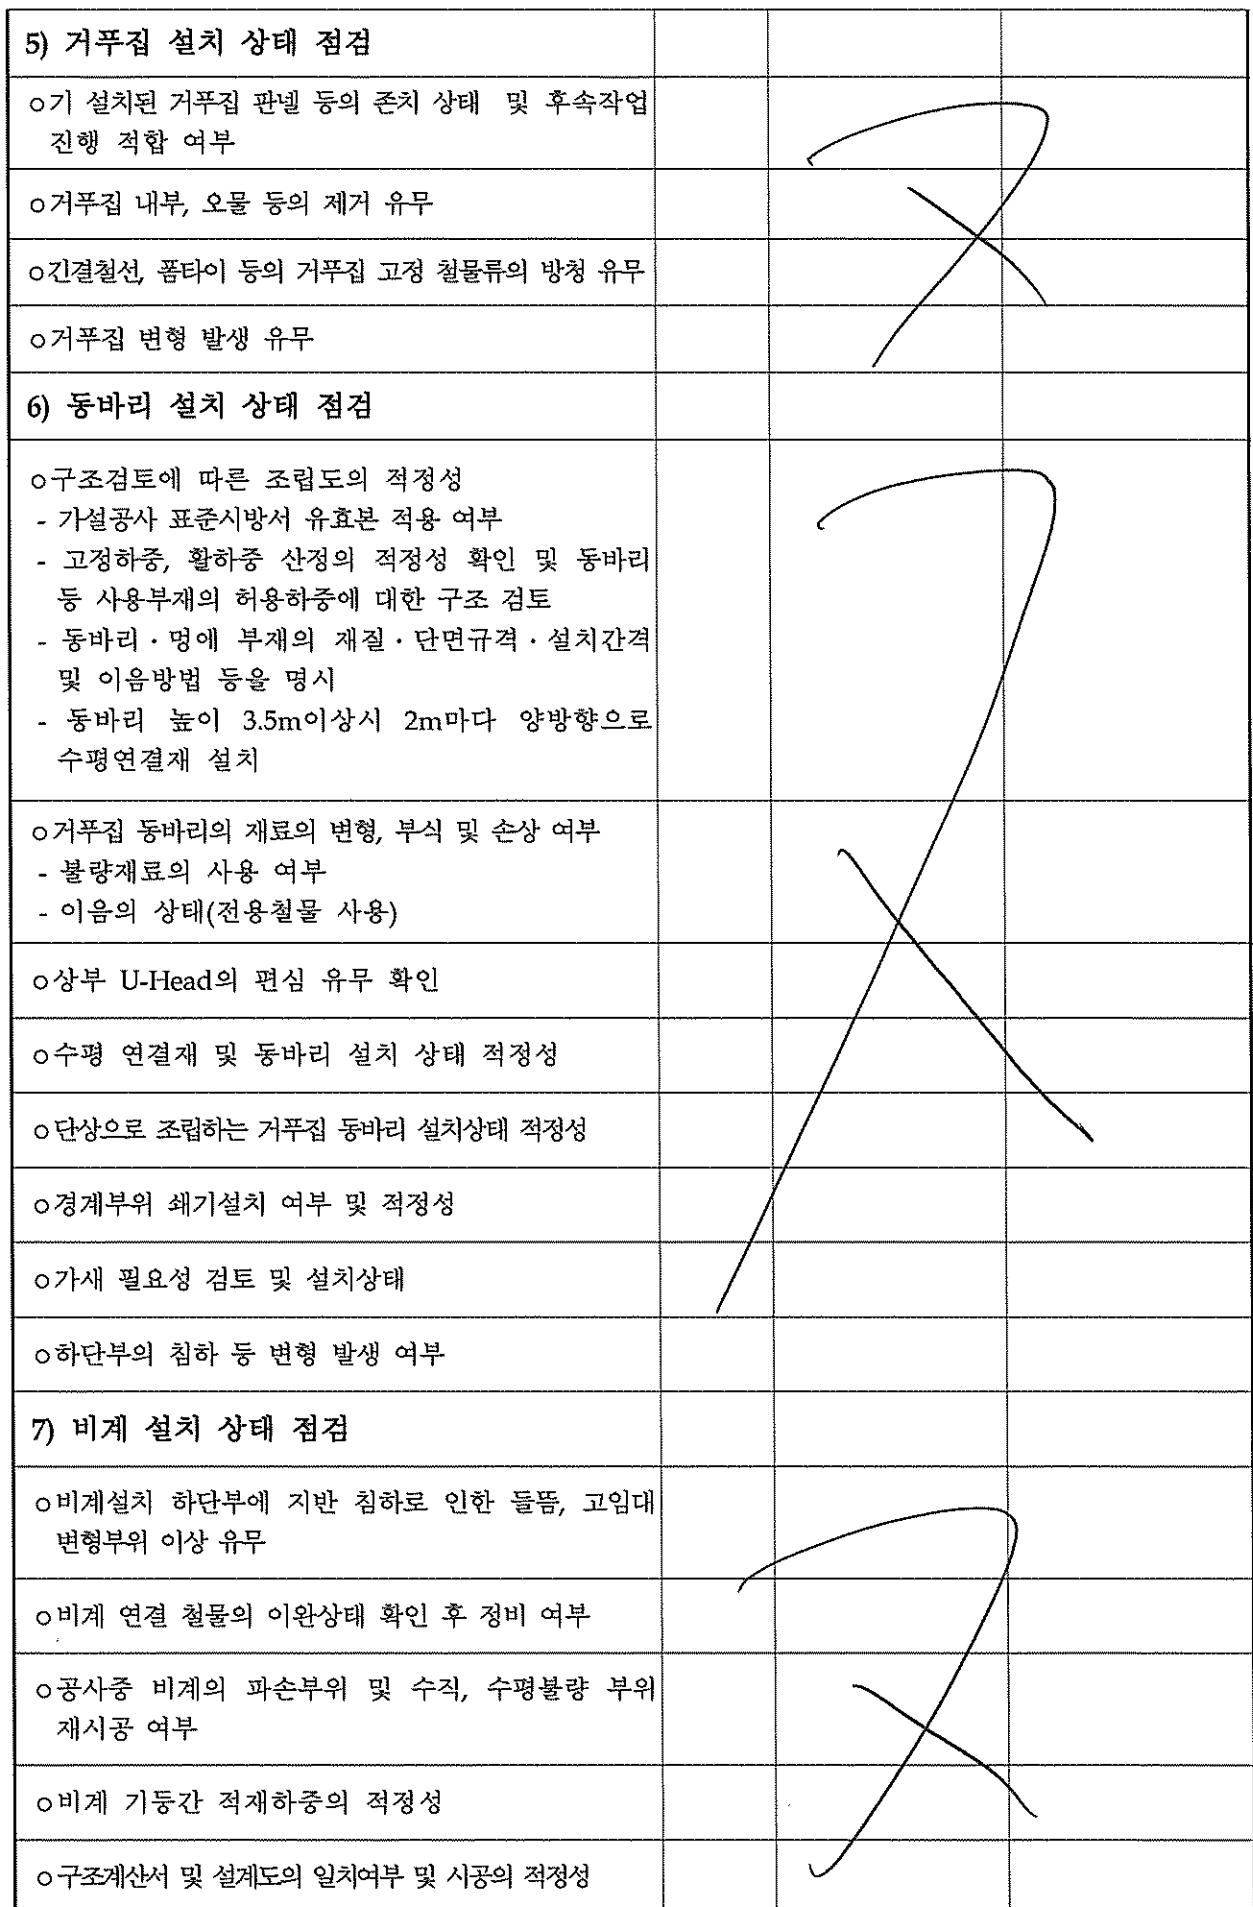 5) 거푸집 설치 상태 점검
ㅇ기 설치된 거푸집 판넬 등의 존치 상태 및 후속작업
진행 적합 여부
ㅇ거푸집 내부, 오물 등의 제거 유무
ㅇ긴결철선, 폼타이 등의 거푸집 고정 철물류의 방청 유무
ㅇ거푸집 변형 발생 유무
6) 동바리 설치 상태 점검
ㅇ구조검토에 따른 조립도의 적정성
- 가설공사 표준시방서 유효본 적용 여부
- 고정하중, 활하중 산정의 적정성 확인 및 동바리
등 사용부재의 허용하중에 대한 구조 검토
- 동바리·멍에 부재의 재질·단면규격·설치간격
및 이음방법 등을 명시
- 동바리 높이 3.5m이상시 2m마다 양방향으로
수평연결재 설치
ㅇ거푸집 동바리의 재료의 변형, 부식 및 손상 여부
- 불량재료의 사용 여부
- 이음의 상태(전용철물 사용)
ㅇ상부 U-Head의 편심 유무 확인
ㅇ수평 연결재 및 동바리 설치 상태 적정성
ㅇ단상으로 조립하는 거푸집 동바리 설치상태 적정성
ㅇ경계부위 쐐기설치 여부 및 적정성
ㅇ가새 필요성 검토 및 설치상태
ㅇ하단부의 침하 등 변형 발생 여부
7) 비계 설치 상태 점검
ㅇ비계설치 하단부에 지반 침하로 인한 들뜸, 고임대
변형부위 이상 유무
ㅇ비계 연결 철물의 이완상태 확인 후 정비 여부
ㅇ공사중 비계의 파손부위 및 수직, 수평불량 부위
재시공 여부
ㅇ비계 기둥간 적재하중의 적정성
ㅇ구조계산서 및 설계도의 일치여부 및 시공의 적정성